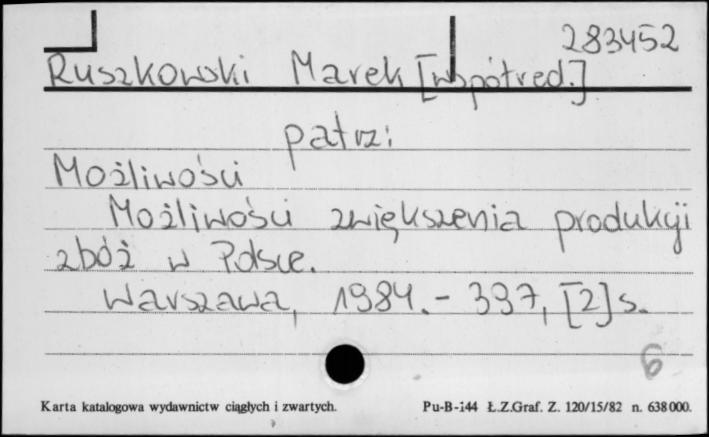 283452
Ruszkowski Marek [współred.]
patrz:
Możliwości
Możliwości zwiększenia produkcji
zbóż w Polsce.
Warszawa, 1984. - 397, [2] s.
6
Karta katalogowa wydawnictw ciągłych i zwartych. Pu-B-144 Ł.Z.Graf. Z. 120/15/82 n. 638 000.